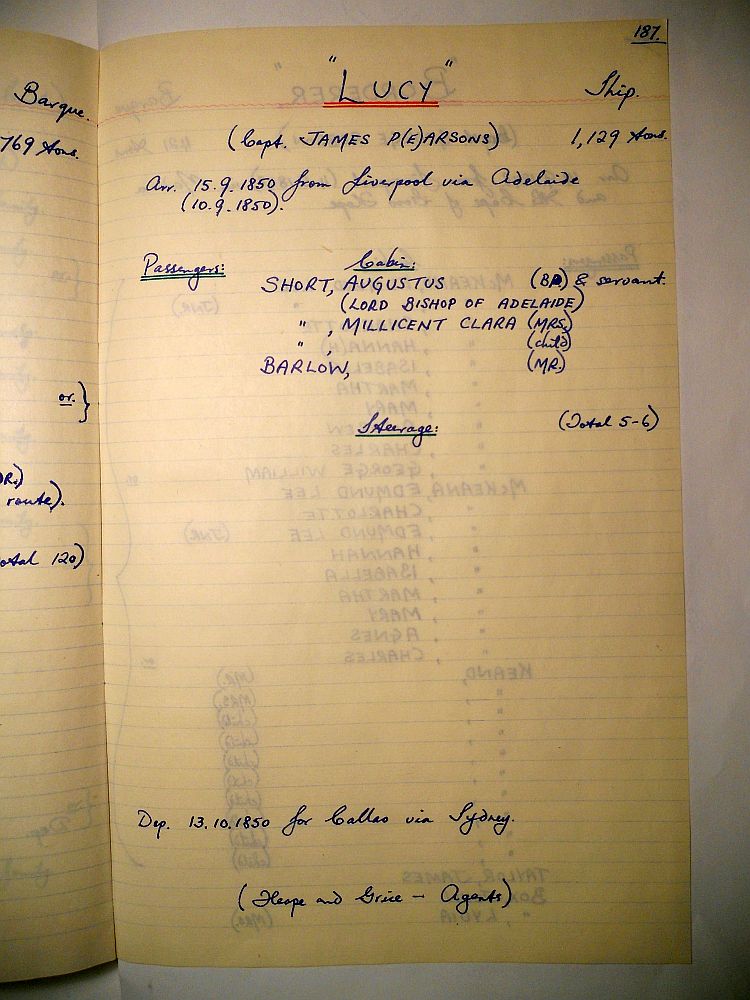 187.
Barque.
"LUCY"
Ship.
769 tons.
(Capt. JAMES P(E)ARSONS)
1,129 tons.
Arr. 15.9.1850 from Liverpool via Adelaide
(10.9.1850).
Passengers:
Cabin:
SHORT, AUGUSTUS (BP) & servant.
(LORD BISHOP OF ADELAIDE)
" , MILLICENT CLARA (MRS)
" , (child)
BARLOW, (MR.)
or. }
Steerage: (Total 5-6)
DR.)
route).
otal 120)
Dep. 13.10.1850 for Callao via Sydney.
(Heape and Grice - Agents)